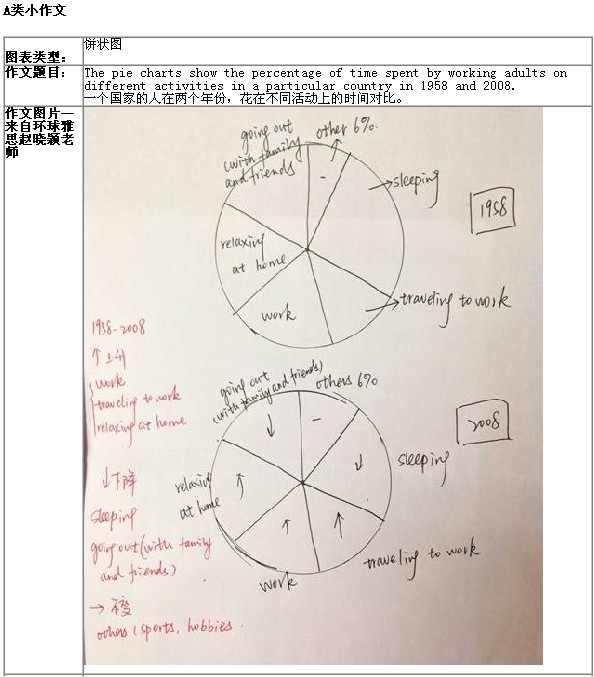 A类小作文
图表类型:
饼状图
作文题目:
The pie charts show the percentage of time spent by working adults on
different activities in a particular country in 1958 and 2008.
一个国家的人在两个年份，花在不同活动上的时间对比。
作文图片—
来自环球雅
思赵晓颖老
师
going out
(with family
and friends
other 6%.
sleeping
1958
relaxing
at home
work
traveling to work
1958-2008
↑上升
work
traveling to work
relaxing at home
going out
(with family and friends)
others 6%
2008
sleeping
relaxing
at home
work
traveling to work
↓下降
sleeping
going out (with family
and friends)
→ 不变
others (sports, hobbies.